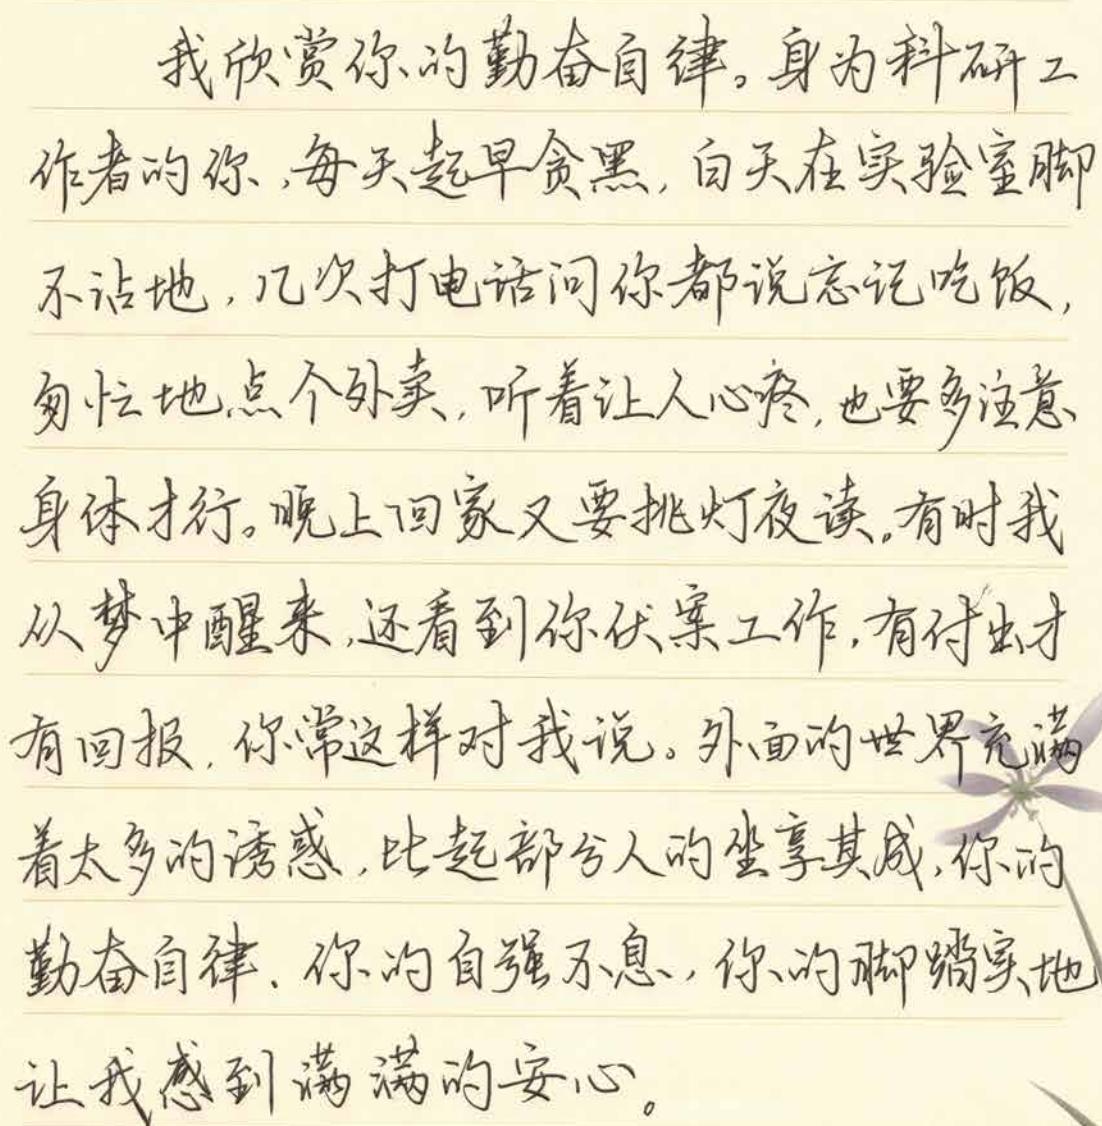 我欣赏你的勤奋自律。身为科研工
作者的你,每天起早贪黑,白天在实验室脚
不沾地,几次打电话问你都说忘记吃饭,
匆忙地点个外卖,听着让人心疼,也要多注意
身体才行。晚上回家又要挑灯夜读。有时我
从梦中醒来,还看到你伏案工作,有付出才
有回报,你常这样对我说。外面的世界充满
着太多的诱惑,比起部分人的坐享其成,你的
勤奋自律、你的自强不息,你的脚踏实地
让我感到满满的安心。